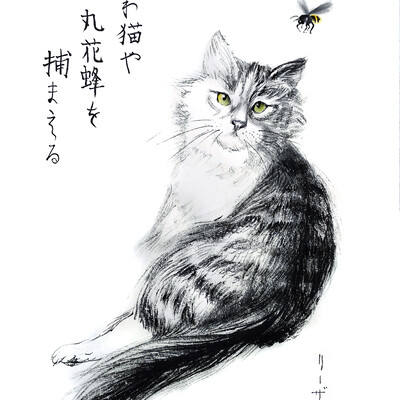 わ猫や
丸花蜂を
捕まえる
リーザ